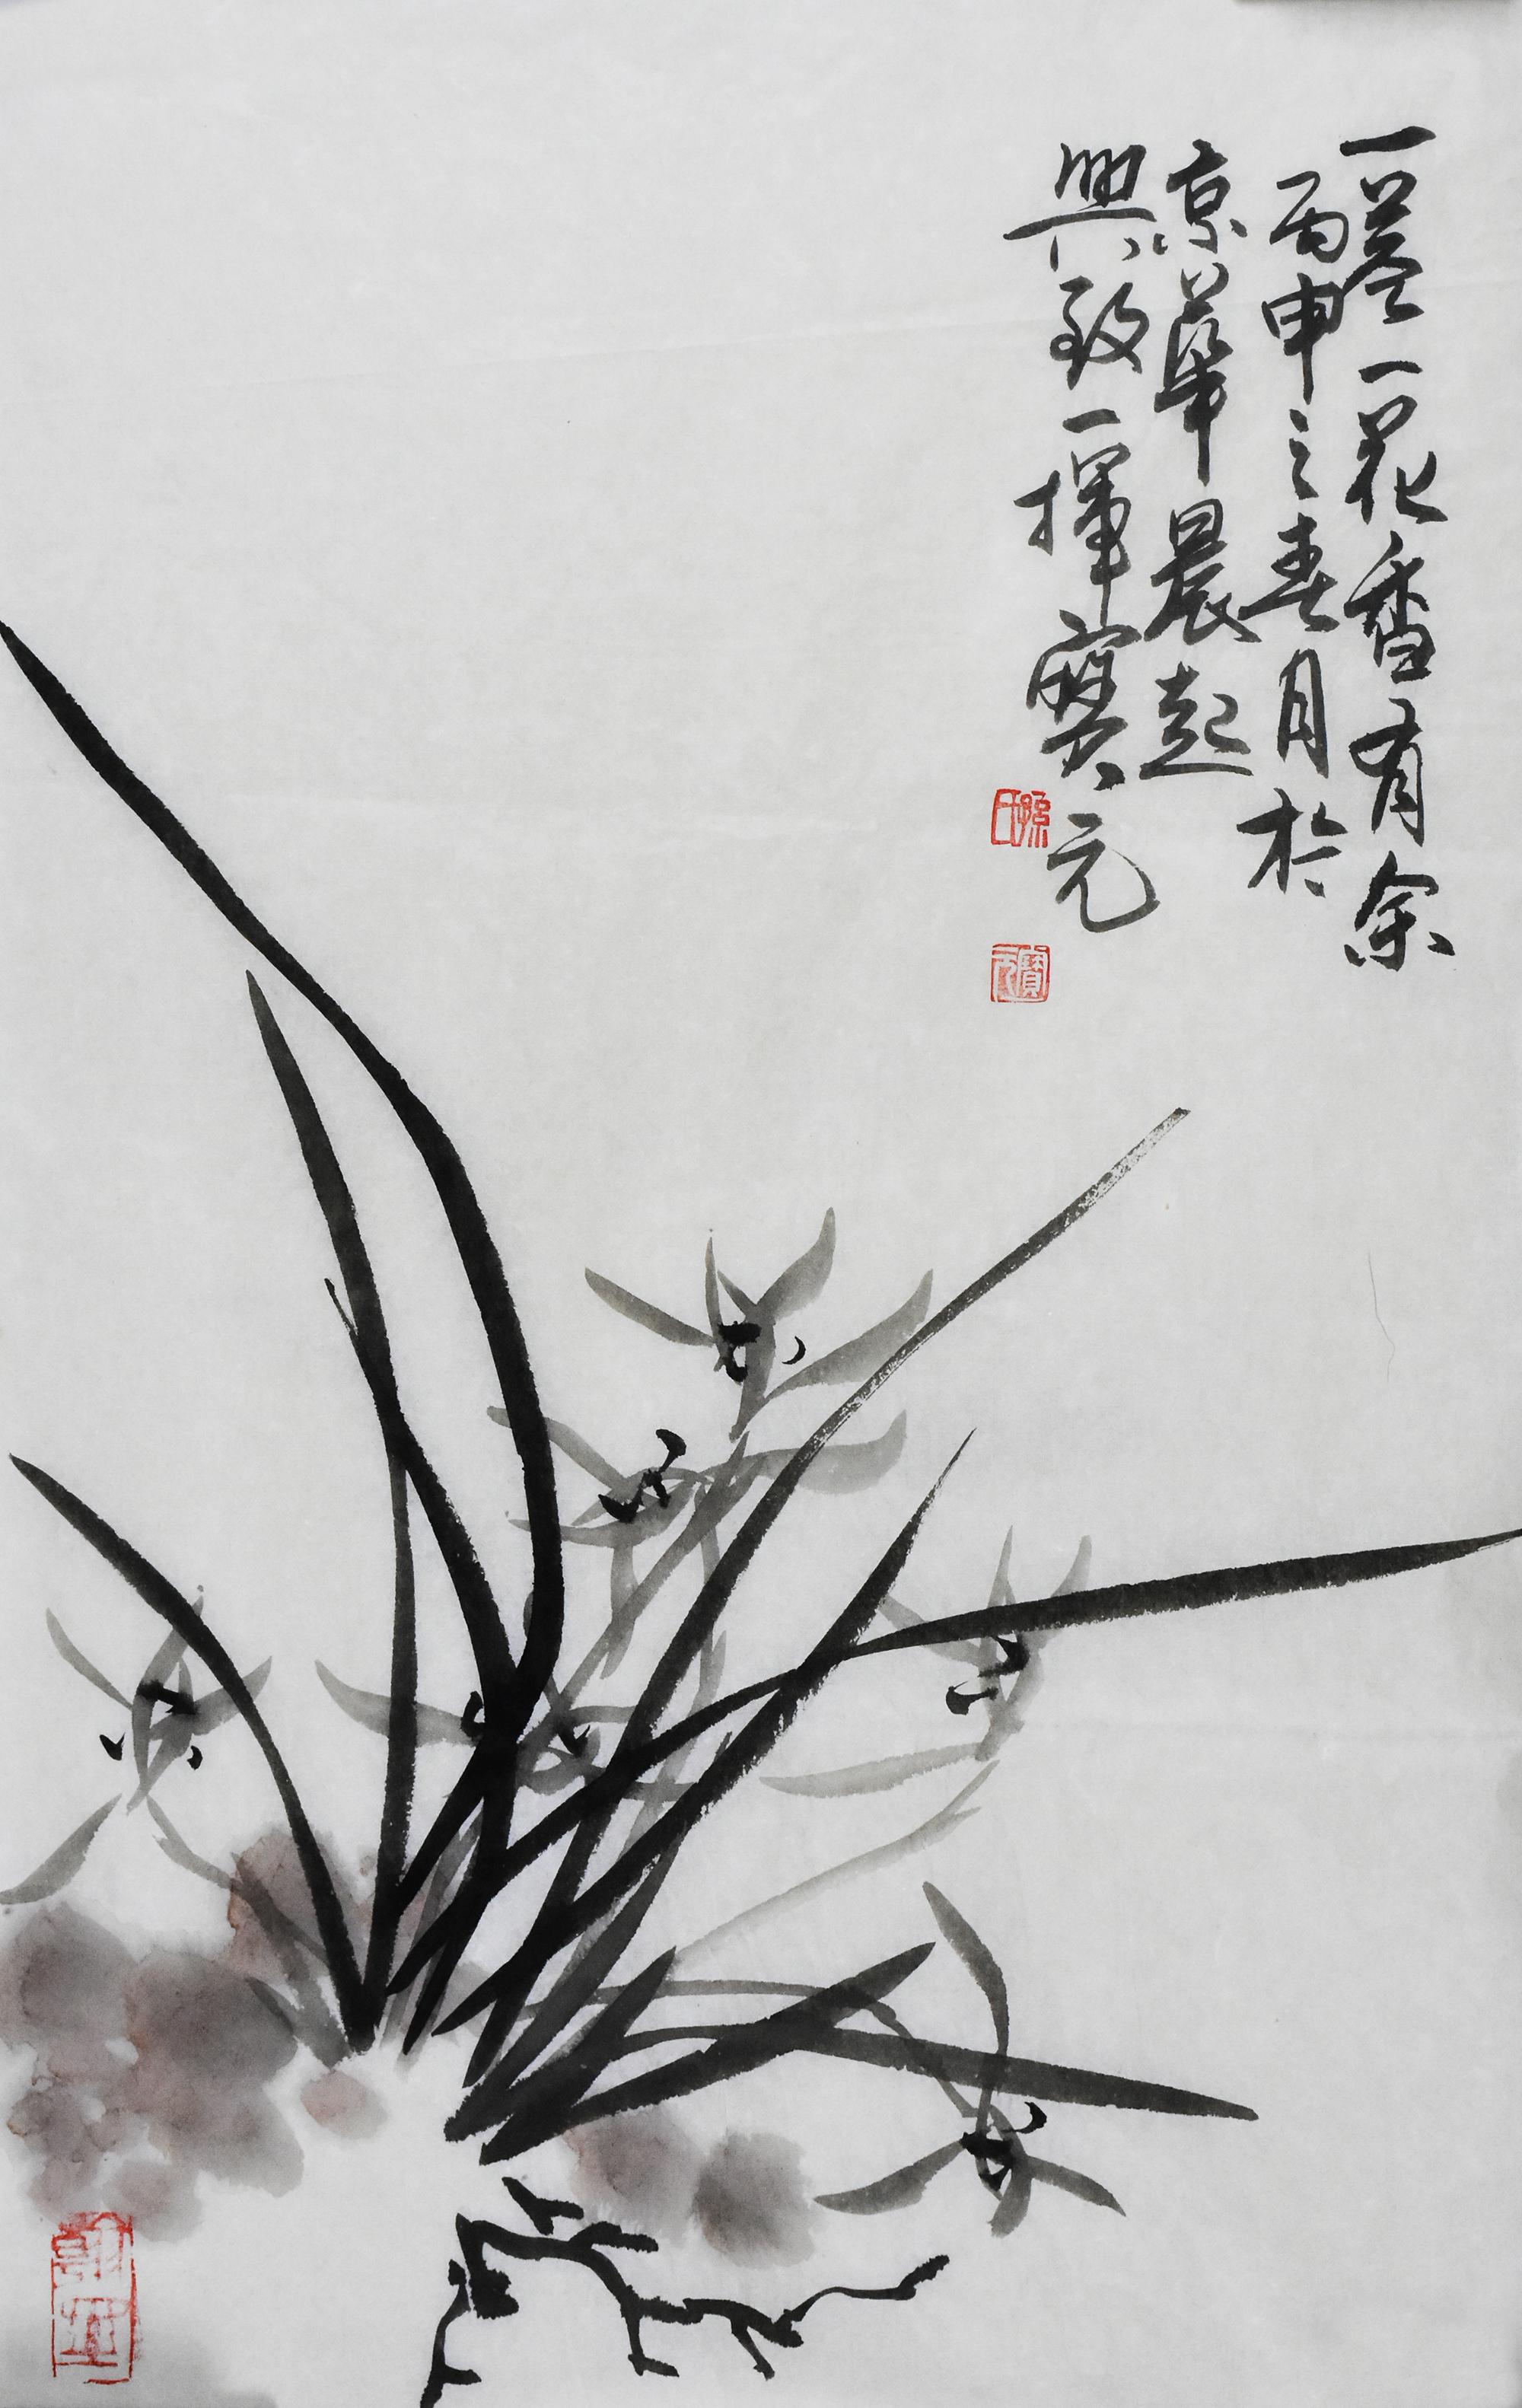 一莖一花香有余
丙申之春月於
京華晨起
興致一揮寶元
孫氏
寶元